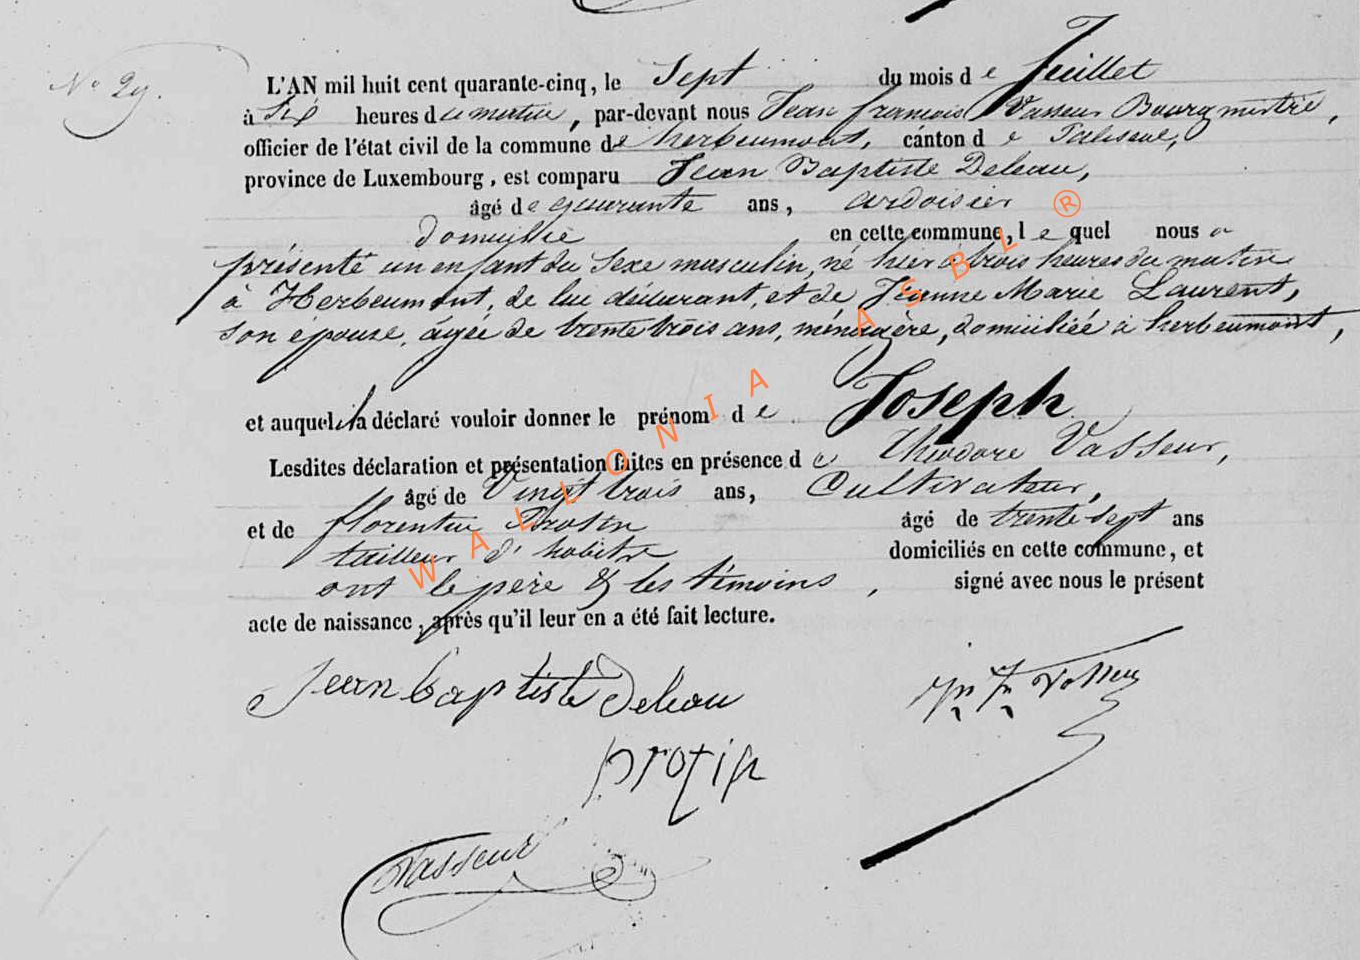 N° 29.
L'AN mil huit cent quarante-cinq, le Sept du mois de Juillet
à Six heures du matin, par-devant nous Jean françois Vasseur Bourgmestre,
officier de l'état civil de la commune de herbeumont, cánton de Paliseul,
province de Luxembourg, est comparu Jean Baptiste Deleau,
âgé de quarante ans, ardoisier
domicilié en cette commune, lequel nous a
présenté un enfant du Sexe masculin, né hier à trois heures du matin
à Herbeumont, de lui déclarant, et de Jeanne Marie Laurent,
son épouse, âgée de trente trois ans, ménagère, domiciliée à herbeumont,
et auquel il a déclaré vouloir donner le prénom de Joseph
Lesdites déclaration et présentation faites en présence de Théodore Vasseur,
âgé de Vingt trois ans, Cultivateur,
et de florentin âgé de trente Sept ans
tailleur d'habits domiciliés en cette commune, et
ont le père & les témoins, signé avec nous le présent
acte de naissance, après qu'il leur en a été fait lecture.
Jean baptiste Deleau
Vasseur
WALLONIA ASBL ®